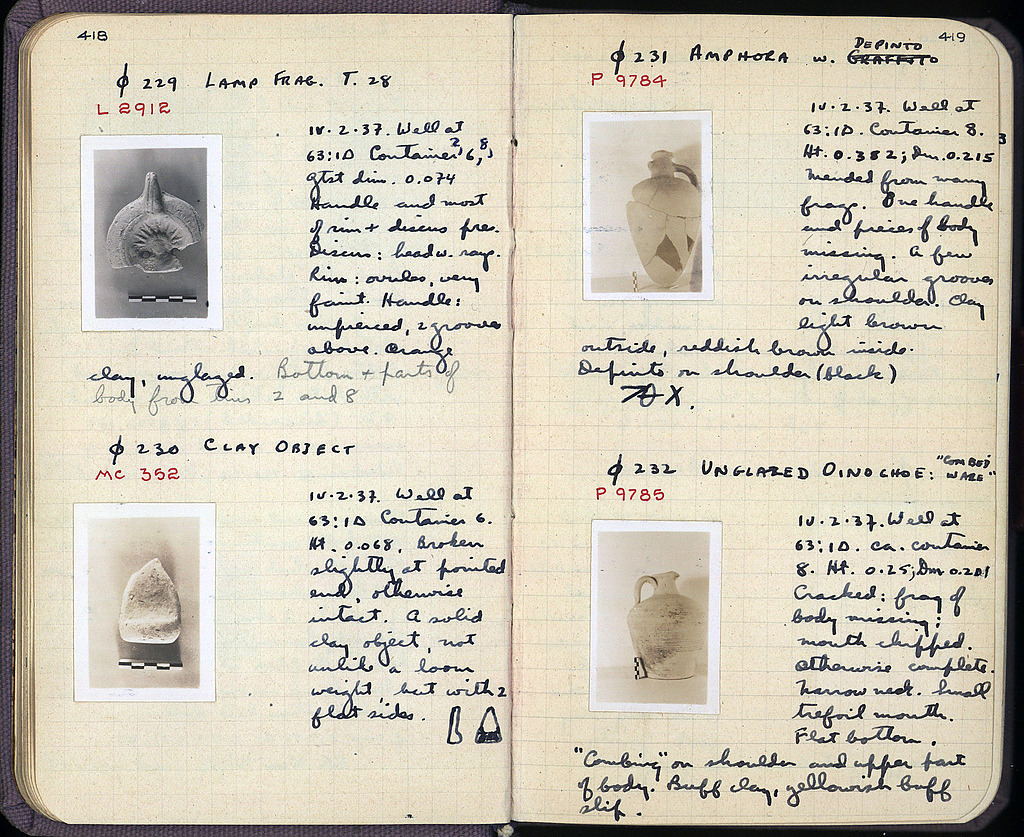 418
ϕ 229 LAMP FRAG. T. 28
L 2912
IV·2·37. Well at
63:1Δ Container 2, 6, 8,
gtst dim. 0.074
Handle and most
of rim + discus pres.
Discus: head w. rays.
Rim: ovules, very
faint. Handle:
unpierced, 2 grooves
above. Orange
clay, unglazed. Bottom + parts of
body from tins 2 and 8
ϕ 230 CLAY OBJECT
MC 352
IV·2·37. Well at
63:1Δ Container 6.
Ht. 0.068. Broken
slightly at pointed
end, otherwise
intact. A solid
clay object, not
unlike a loom
weight, but with 2
flat sides.
419
ϕ 231 AMPHORA w. GRAFFITO DEPINTO
P 9784
IV·2·37. Well at
63:1Δ. Container 8.
Ht. 0.382; Dm. 0.215
Mended from many
frags. One handle
and pieces of body
missing. A few
irregular grooves
on shoulder. Clay
light brown
outside, reddish brown inside.
Depinto on shoulder (black)
X.
ϕ 232 UNGLAZED OINOCHOE: "COMBED WARE"
P 9785
IV·2·37. Well at
63:1Δ. ca. container
8. Ht. 0.25; Dm. 0.201
Cracked: frag of
body missing;
mouth chipped.
Otherwise complete.
Narrow neck. Small
trefoil mouth.
Flat bottom.
"Combing" on shoulder and upper part
of body. Buff clay, yellowish buff
slip.